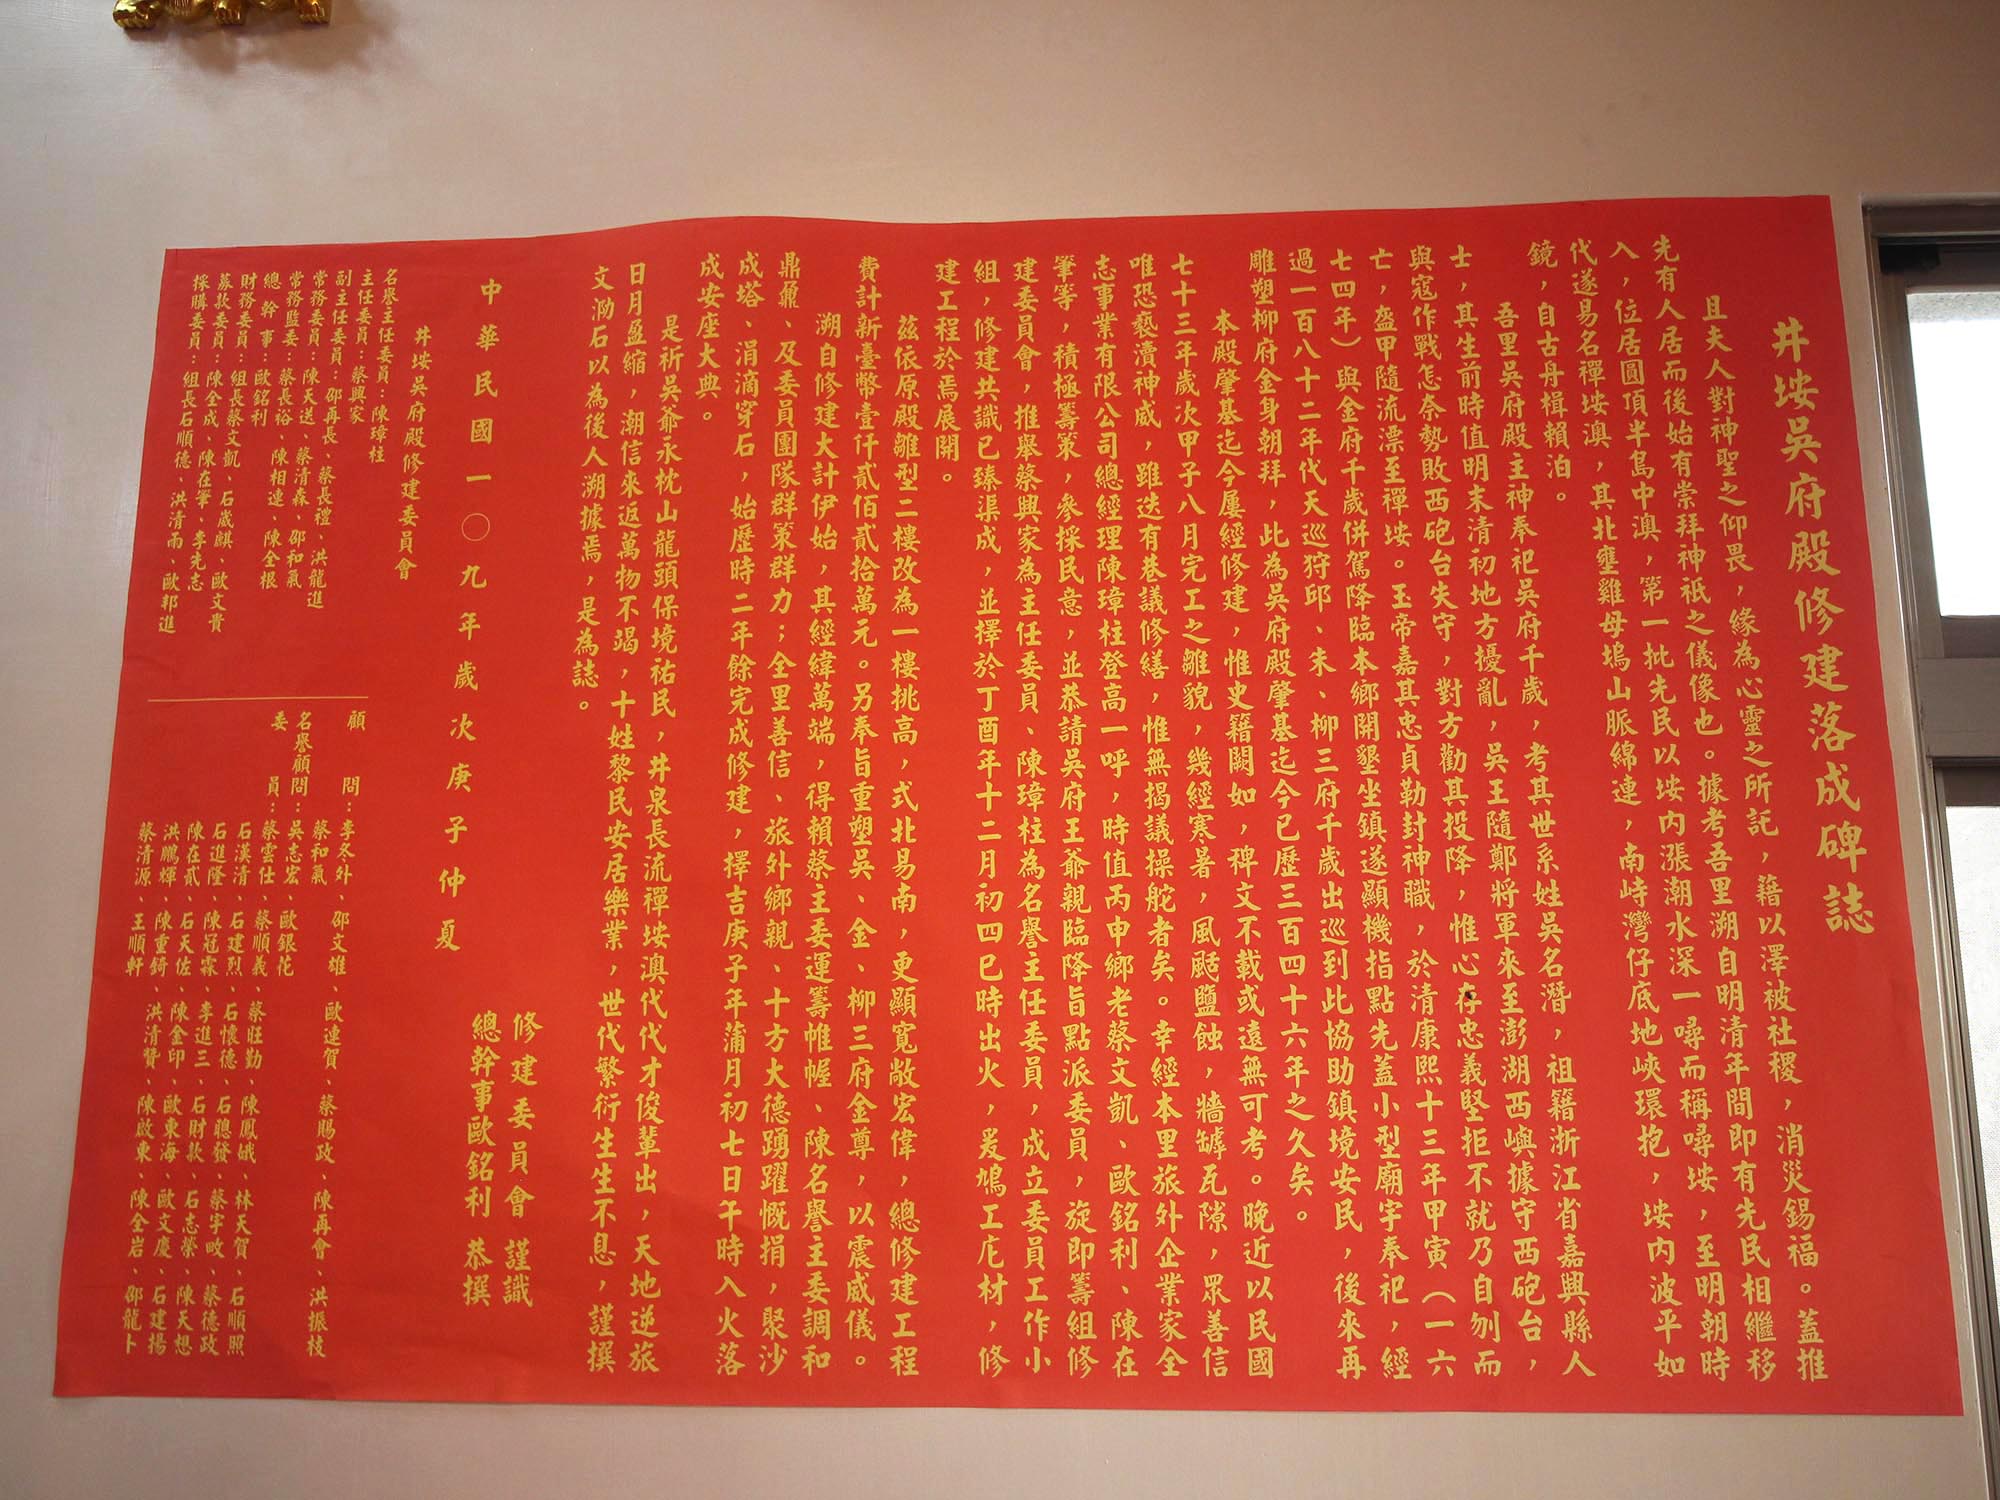 井垵吳府殿修建落成碑誌
且夫人對神聖之仰畏，緣為心靈之所記，藉以澤被社稷，消災錫福。蓋推
先有人居而後始有崇拜神祇之儀像也。據考吾里溯自明清年間即有先民相繼移
入，位居圓頂半島中澳，第一批先民以垵內漲潮水深一噚而稱噚垵，至明朝時
代遂易名禪垵澳，其北壅雞母塢山脈綿連，南峙灣仔底地峽環抱，垵內波平如
鏡，自古舟楫賴泊。
吾里吳府殿主神奉祀吳府千歲，考其世系姓吳名潛，祖籍浙江省嘉興縣人
士，其生前時值明末清初地方擾亂，吳王隨鄭將軍來至澎湖西嶼據守西砲台，
與寇作戰怎奈勢敗西砲台失守，對方勸其投降，惟心存忠義堅拒不就乃自刎而
亡，盔甲隨流漂至禪垵。玉帝嘉其忠貞勒封神職，於清康熙十三年甲寅（一六
七四年）與金府千歲併駕降臨本鄉開墾坐鎮遂顯機指點先蓋小型廟宇奉祀，經
過一百八十二年代天巡狩邱、朱、柳三府千歲出巡到此協助鎮境安民，後來再
雕塑柳府金身朝拜，此為吳府殿肇基迄今已歷三百四十六年之久矣。
本殿肇基迄今屢經修建，惟史籍闕如，稗文不載或遠無可考。晚近以民國
七十三年歲次甲子八月完工之雛貌，幾經寒暑，風颳鹽蝕，牆罅瓦隙，眾善信
唯恐褻瀆神威，雖迭有巷議修繕，惟無揭議操舵者矣。幸經本里旅外企業家全
志事業有限公司總經理陳璋柱登高一呼，時值丙申鄉老蔡文凱、歐銘利、陳在
筆等，積極籌策，參採民意，並恭請吳府王爺親臨降旨點派委員，旋即籌組修
建委員會，推舉蔡興家為主任委員、陳璋柱為名譽主任委員，成立委員工作小
組，修建共識已臻渠成，並擇於丁酉年十二月初四巳時出火，爰鳩工庀材，修
建工程於焉展開。
茲依原殿雛型二樓改為一樓挑高，式北易南，更顯寬敞宏偉，總修建工程
費計新臺幣壹仟貳佰貳拾萬元。另奉旨重塑吳、金、柳三府金尊，以震威儀。
溯自修建大計伊始，其經緯萬端，得賴蔡主委運籌帷幄、陳名譽主委調和
鼎鼐、及委員團隊群策群力；全里善信、旅外鄉親、十方大德踴躍慨捐，聚沙
成塔、涓滴穿石，始歷時二年餘完成修建，擇吉庚子年蒲月初七日午時入火落
成安座大典。
是祈吳爺永枕山龍頭保境祐民，井泉長流禪垵澳代代才俊輩出，天地逆旅
日月盈縮，潮信來返萬物不竭，十姓黎民安居樂業，世代繁衍生生不息，謹撰
文泐石以為後人溯據焉，是為誌。
修建委員會 謹識
總幹事歐銘利 恭撰
中華民國一〇九年歲次庚子仲夏
井垵吳府殿修建委員會
名譽主任委員：陳璋柱
主任委員：蔡興家
副主任委員：邵再長、蔡長禮、洪龍進
常務委員：陳天送、蔡清森、邵和氣
常務監委：蔡長裕、陳相連、陳全根
總幹事：歐銘利
財務委員：組長蔡文凱、石歲麒、歐文貴
募款委員：陳全成、陳在筆、李先志
採購委員：組長石順德、洪清雨、歐邦進
顧問：李冬外、邵文雄、歐連賀、蔡賜政、陳再會、洪振枝
蔡和氣
名譽顧問：吳志宏、歐銀花
委員：蔡雲仕、蔡順義、蔡旺勤、陳鳳娥、林天賀、石順照
石漢清、石建烈、石懷德、石聰發、蔡宇畋、蔡德政
石進隆、陳冠霖、李進三、石財款、石志榮、陳天想
陳在貳、石天佐、陳金印、歐東海、歐文慶、石建揚
洪鵬輝、陳重錡、洪清贊、陳啟東、陳全岩、邵龍卜
蔡清源、王順軒